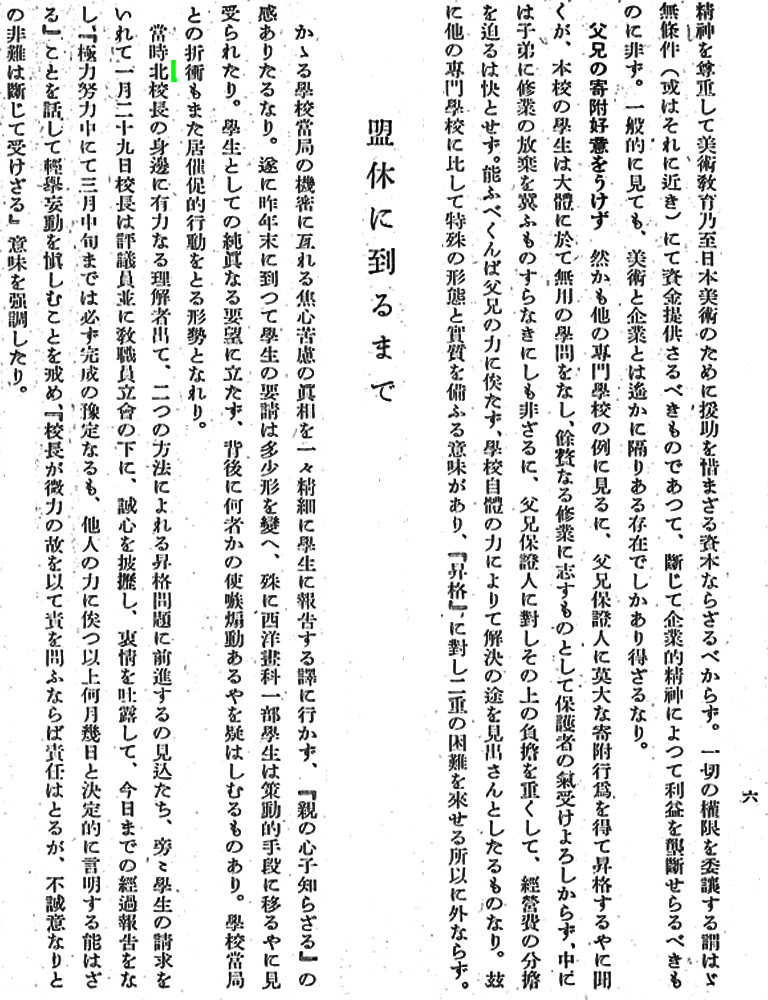 六
精神を尊重して美術敎育乃至日本美術のために援助を惜まざる資本ならざるべからず。一切の權限を委讓する謂はゞ
無條件(或はそれに近き)にて資金提供さるべきものであつて、斷じて企業的精神によつて利益を壟斷せらるべきも
のに非ず。一般的に見ても、美術と企業とは遙かに隔りある存在でしかあり得ざるなり。
父兄の寄附好意をうけず　然かも他の專門學校の例に見るに、父兄保證人に莫大な寄附行爲を得て昇格するやに聞
くが、本校の學生は大體に於て無用の學問をなし、餘贅なる修業に志すものとして保護者の氣受けよろしからず、中に
は子弟に修業の放棄を冀ふものすらなきにしも非ざるに、父兄保證人に對しその上の負擔を重くして、經營費の分擔
を迫るは快とせず。能ふべくんば父兄の力に俟たず、學校自體の力によりて解決の途を見出さんとしたるものなり。玆
に他の專門學校に比して特殊の形態と實質を備ふる意味があり、『昇格』に對し二重の困難を來せる所以に外ならず。
盟休に到るまで
かゝる學校當局の機密に亙れる焦心苦慮の眞相を一々精細に學生に報告する譯に行かず、『親の心子知らざる』の
感ありたるなり。遂に昨年末に到つて學生の要請は多少形を變へ、殊に西洋畫科一部學生は策動的手段に移るやに見
受られたり。學生としての純眞なる要望に立たず、背後に何者かの使嗾煽動あるやを疑はしむるものあり。學校當局
との折衝もまた居催促的行動をとる形勢となれり。
當時北校長の身邊に有力なる理解者出て、二つの方法によれる昇格問題に前進するの見込たち、旁々學生の請求を
いれて一月二十九日校長は評議員並に敎職員立會の下に、誠心を披攊し、衷情を吐露して、今日までの經過報告をな
し、『極力努力中にて三月中旬までは必ず完成の豫定なるも、他人の力に俟つ以上何月幾日と決定的に言明する能はざ
る』ことを話して輕擧妄動を愼しむことを戒め、『校長が微力の故を以て責を問ふならば責任はとるが、不誠意なりと
の非難は斷じて受けざる』意味を强調したり。